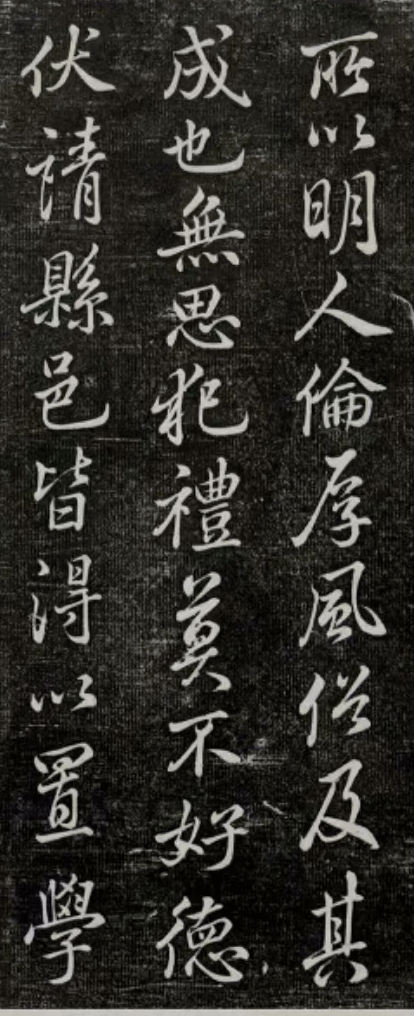 所以明人倫厚風俗及其
成也無思犯禮莫不好德
伏請縣邑皆得以置學